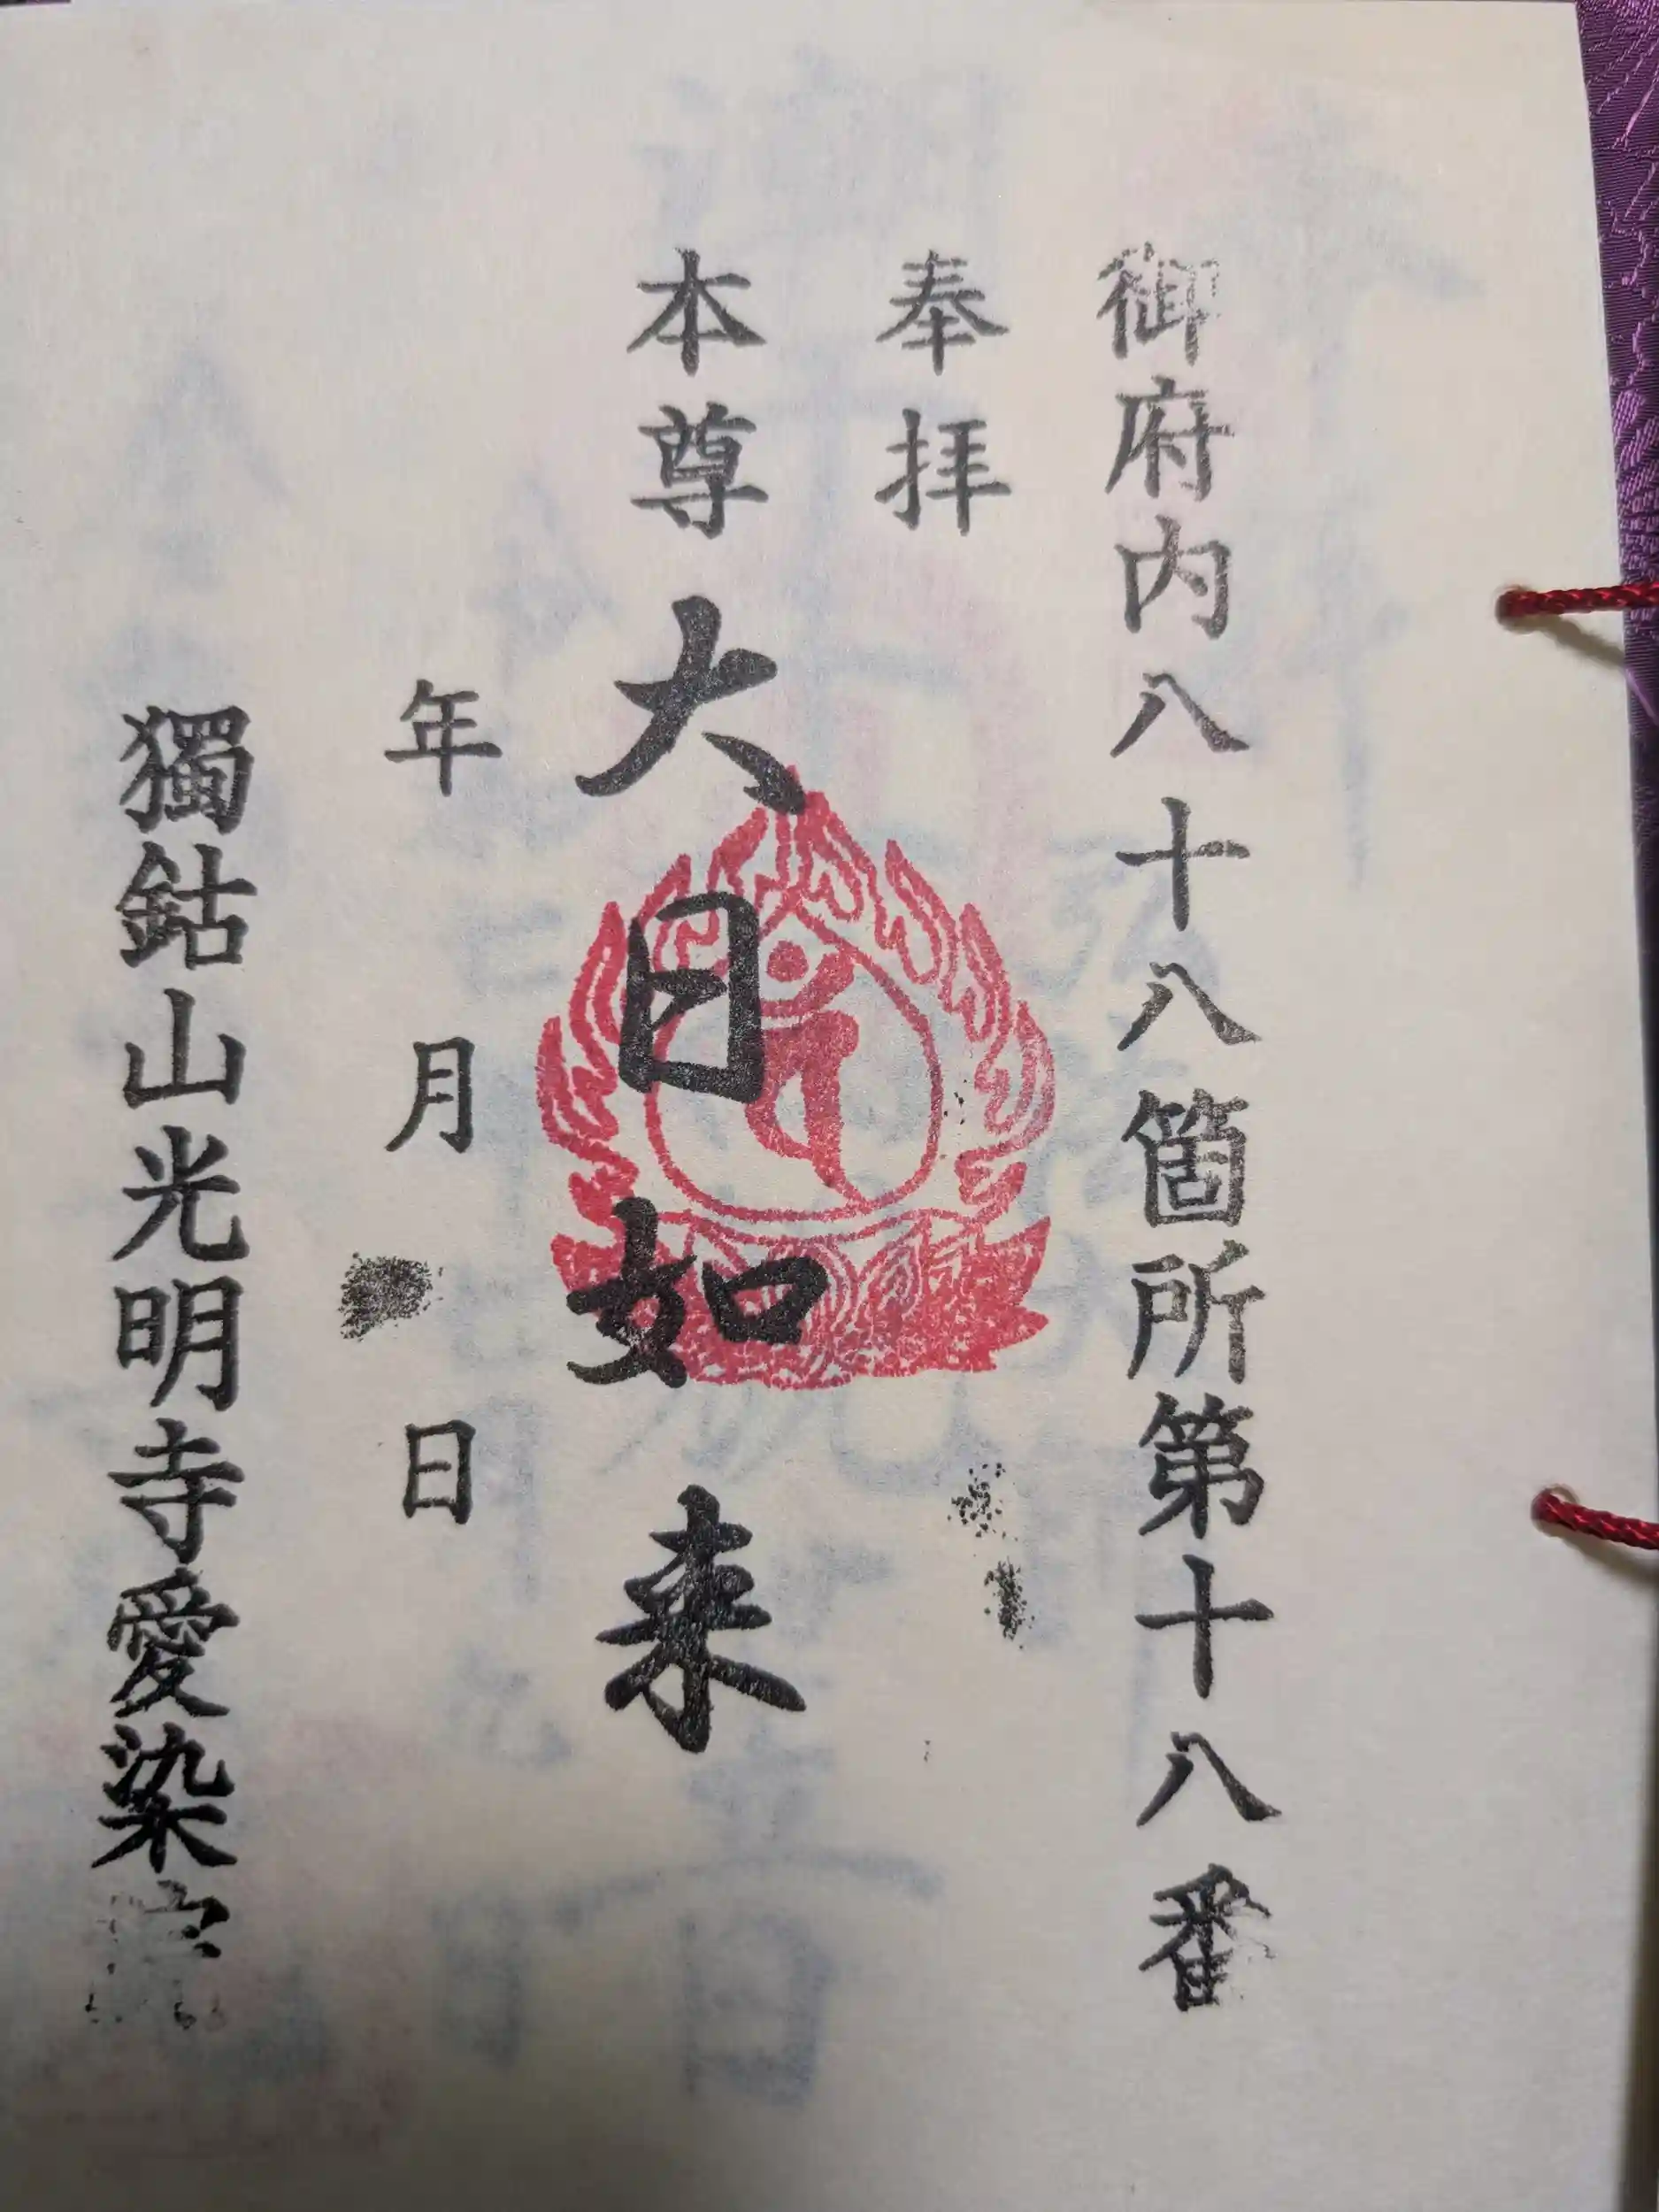 御府内八十八箇所第十八番
奉拝
本尊 大日如来
年 月 日
獨鈷山光明寺愛染